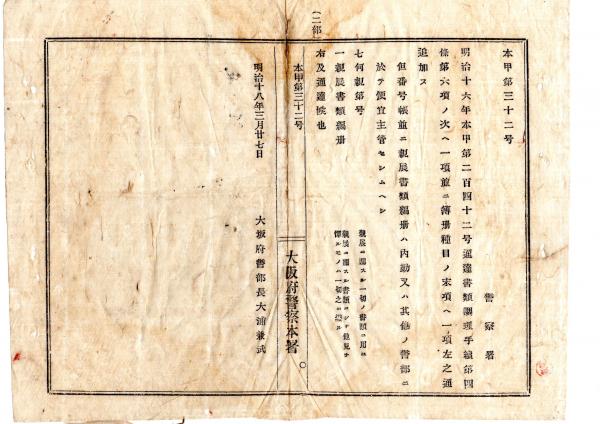 本甲第三十二号
警察署
明治十六年本甲第二百四十二号通達書類調理手続第四
條第六項ノ次ヘ一項並ニ簿册種目ノ末項ヘ一項左之通
追加ス
但番号帳並ニ親展書類編册ハ内勤又ハ其他ノ警部ニ
於テ便宜主管セシムヘシ
七何親第号
親展ニ関スル一切ノ書類ニ用ユ
一親展書類編册
親展ニ関スル書類ニシテ他見ヲ
憚ルモノハ一切之ニ綴ル
右及通達候也
(二部)
本甲第三十二号
大阪府警察本署
明治十八年三月廿七日
大阪府警部長大浦兼武